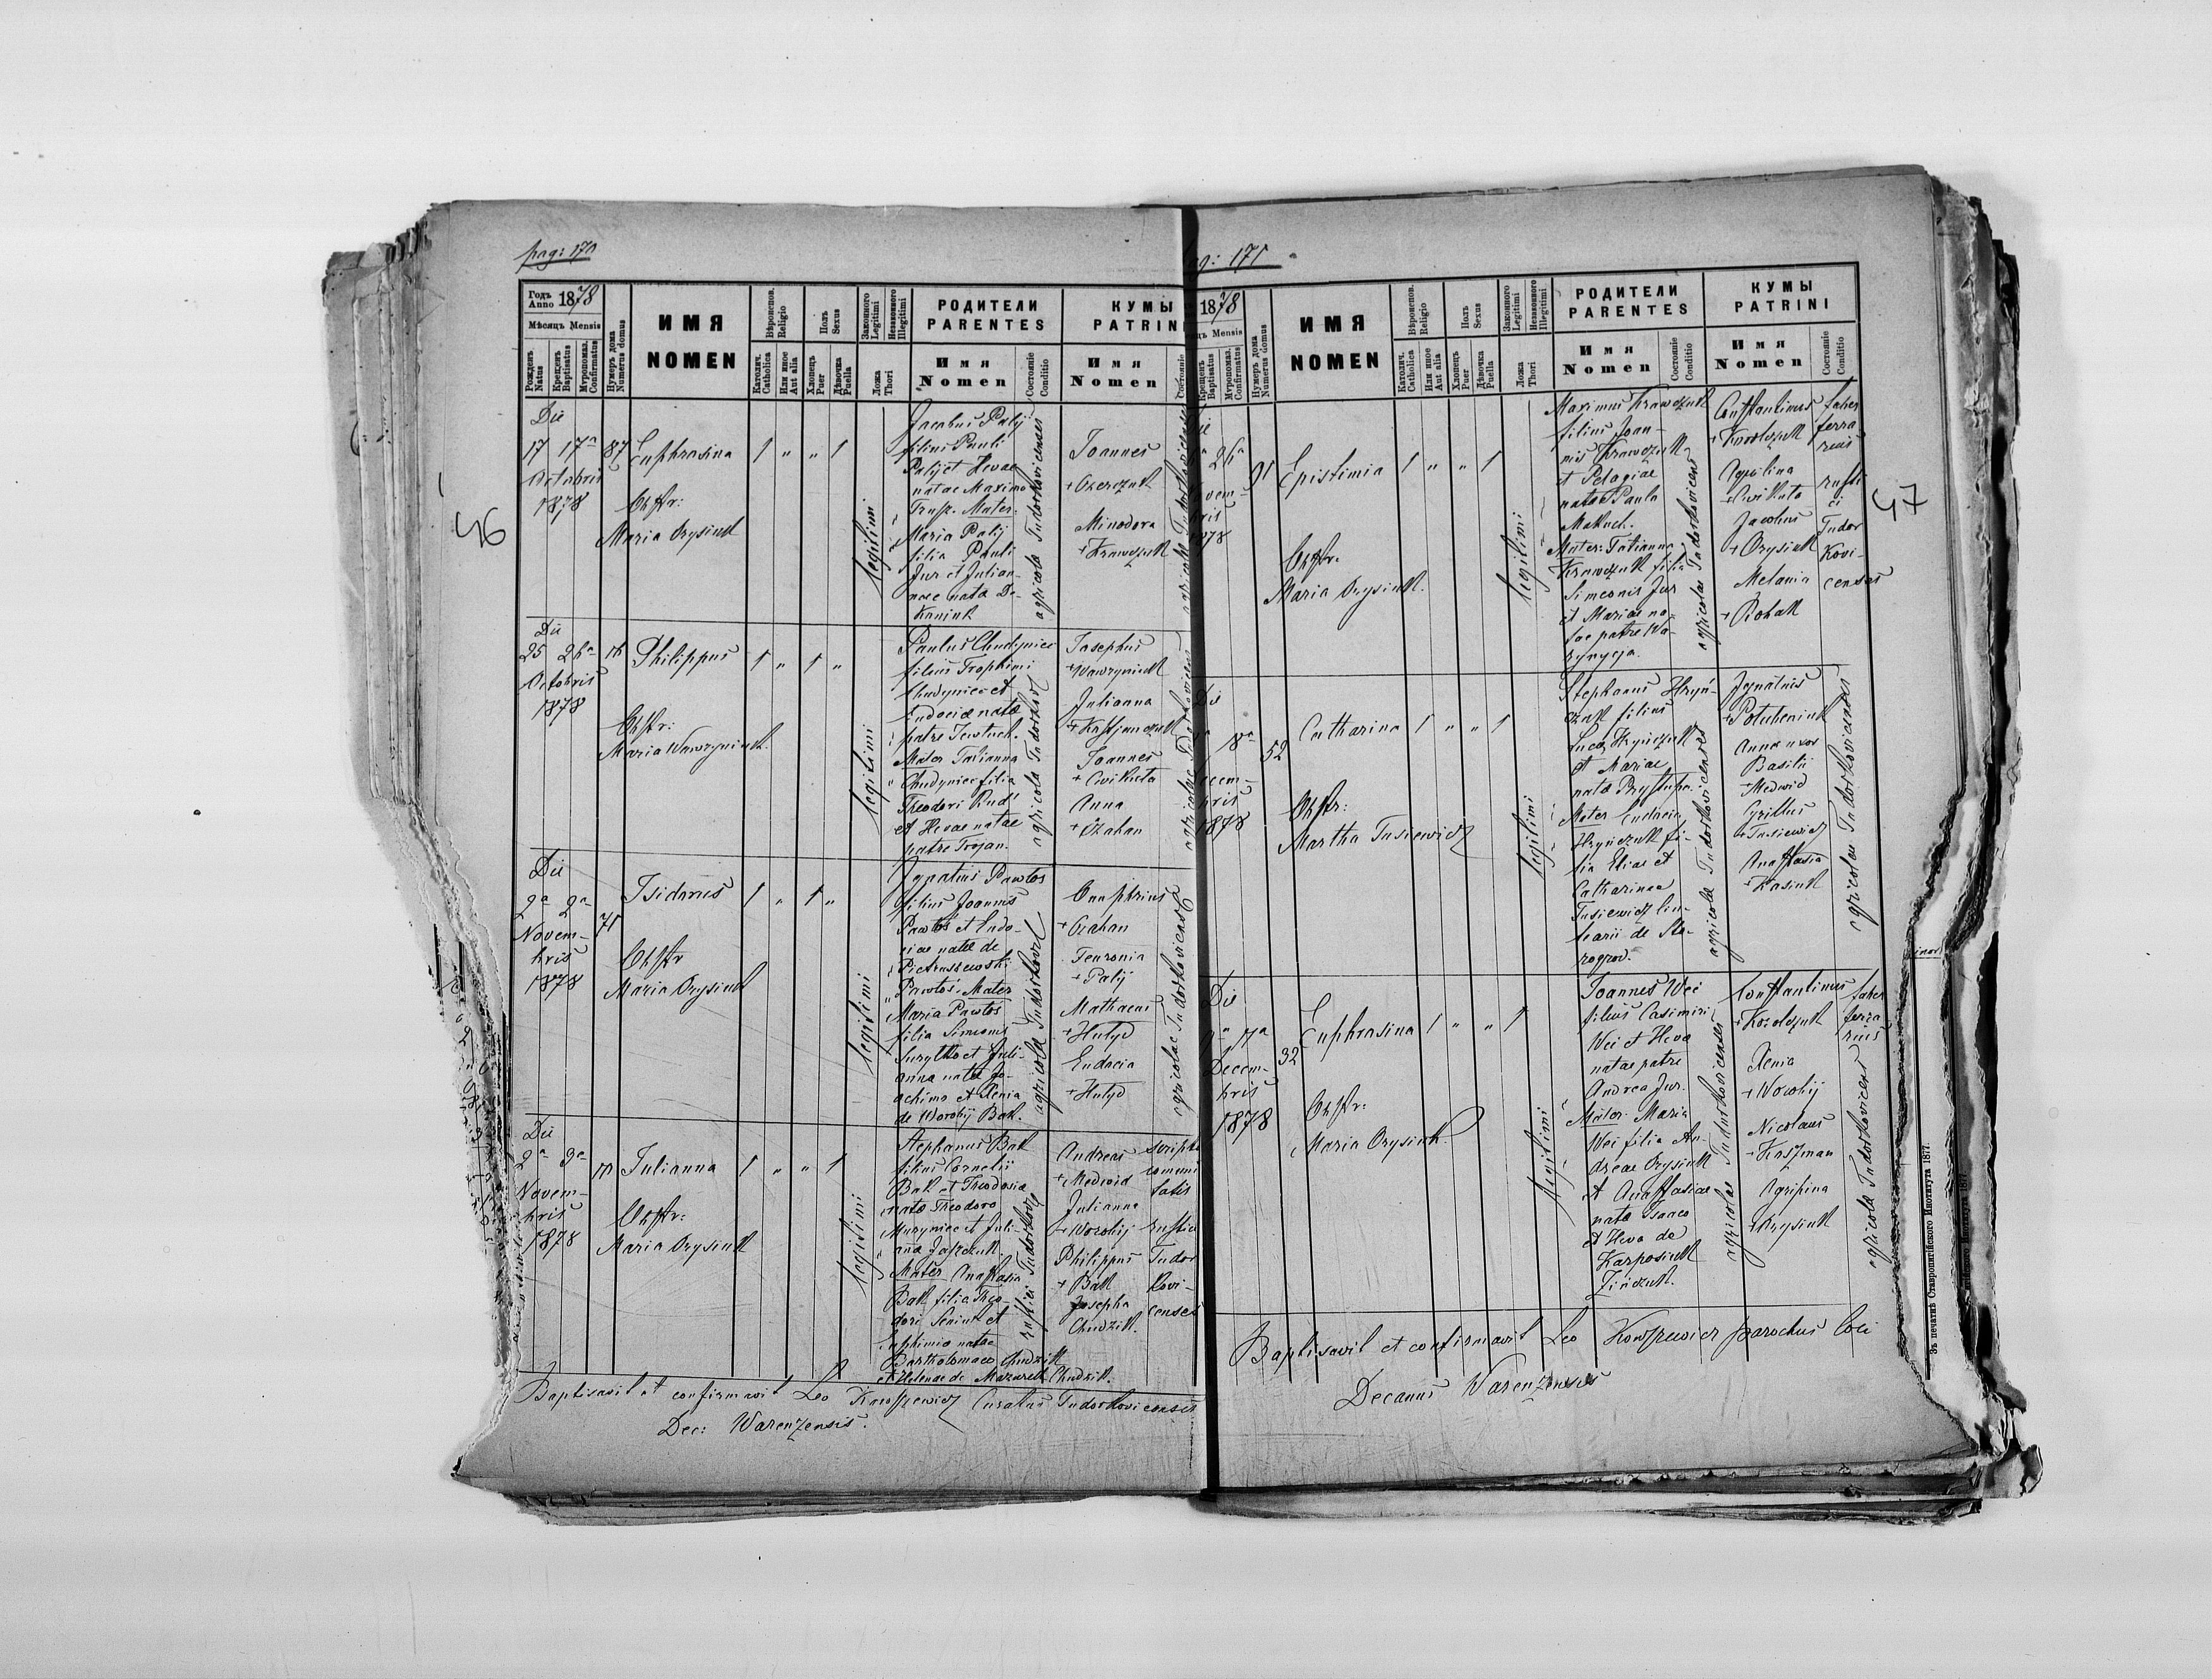 pag: 170
Годъ Anno 1878
Мѣсяцъ Mensis
Рожденъ Natus
Крещенъ Baptisatus
Мѵропомаз. Confirmatus
Нумеръ дома Numerus domus
ИМЯ NOMEN
Вѣроиспов. Religio
Католич. Catholica
Или иное Aut alia
Полъ Sexus
Хлопецъ Puer
Дѣвочка Puella
Законного Legitimi
Незаконного Illegitimi
Ложа Thori
РОДИТЕЛИ PARENTES
Имя Nomen
Состояніе Conditio
КУМЫ PATRINI
Имя Nomen
Состояніе
46
Die
17 17a 87 Euphrosina 1 " " 1
Octobris
1878
Obstr:
Maria Orysiuk
legitimi
Jacobus Palij
filius Pauli
Palij et Hevae
natae Maximo
Mater:
Maria Palij
filia Pauli
Jur et Julian-
nae nata De-
Kaniuk
agricola Tudorkovicenses
Joannes
+
Minodora
+ Krawczuk
Die
25 26a 16 Philippus 1 " 1 "
Octobris
1878
Obstr:
Maria Wawryniuk.
legitimi
Paulus Chudyniec
filius Trophimi
Chudyniec et
Eudocia nata
patre
Mater Tatianna
Chudyniec filia
Theodori Rud
et Hevae natae
patre Trojan.
Josephus
+ Wawryniuk
Julianna
+ Kostjanczuk
Joannes
+ Cwikuta
Anna
+ Ozahan
Die
2a 2a 71 Isidorus 1 " 1 "
Novem-
bris
1878
Obstr
Maria Orysiuk
legitimi
Ignatius Pawlos
filius Joannis
Pawlos et Eudo-
ciae natae de
Pietruszewski
Pawlos. Mater
Maria Pawlos
filia Simeonis
et Juli-
anna nata Jo-
achimo et Xenia
de Worobij Bak.
Onuphrius
+ Ozahan
Feuronia
+ Palij
Mathaeus
+ Hulyd
Eudocia
+ Hulyd
Die
2a 3a Julianna 1 " " 1
Novem-
bris
1878
Obstr:
Maria Orysiuk
legitimi
Stephanus Bak
filius Cornelii
Bak et Theodosia
nata Theodoro
Muryniec et Juli-
ana
Mater Anastasia
Bak filia Theo-
dori Seniuk et
Euphimia natae
Bartholomaeo Chudzik
et Helenae de Mazurek Chudzik.
rustici Tudorkovic
Andreas
+ Medwid
Julianna
+ Worobij
Philippus
+ Bak
Josepha
Chudzik.
scriptor
comuni
tatis
rustici
Tudor
kovi-
censes
Baptisavit et confirmavit Leo Kowszewicz Curatus Tudorkovicensis
Dec: Warenzensis.
pag: 171
1878
Mensis
Крещенъ Baptisatus
Мѵропомаз. Confirmatus
Нумеръ дома Numerus domus
ИМЯ NOMEN
Вѣроиспов. Religio
Католич. Catholica
Или иное Aut alia
Полъ Sexus
Хлопецъ Puer
Дѣвочка Puella
Законного Legitimi
Незаконного Illegitimi
Ложа Thori
РОДИТЕЛИ PARENTES
Имя Nomen
Состояніе Conditio
КУМЫ PATRINI
Имя Nomen
Состояніе Conditio
47
26a 91 Epistimia 1 " " 1
1878
Obstr:
Maria Orysiuk.
legitimi
Maximus Krawczuk
filius Joan-
nis Krawczuk
et Pelagiae
natae Paulo
Makuch.
Mater: Tatianna
Krawczuk filia
Simeonis Jur
et Mariae na-
tae patre Wa-
agricolae Tudorkovicens
Constantinus
+ Kowalczuk
Aquilina
+ Cwikuta
Jacobus
+ Orysiuk
Melania
+ Rohak
faber
ferra
rius
rusti
ci
Tudor
Kovi-
censes
Die
8a 52 Catharina 1 " " 1
Decem-
bris
1878
Obstr:
Martha Tusiewicz
legitimi
Stephanus Hryń-
czuk filius
Lucae Hryńczuk
et Mariae
nata Prystupa.
Mater Eudocia
Hryńczuk fi-
lia Eliae et
Catharinae
Tusiewicz
agricola Tudorkovicenses
Ignatius
+ Potubeniuk
Anna uxor
Basilii
+ Medwid
Cyrillus
+ Tusiewicz
Anastasia
+ Kasiuk
agricolae Tudorkovicenses
Die
9a 17a 32 Euphrosina 1 " " 1
Decem-
bris
1878
Obstr:
Maria Orysiuk.
legitimi
Joannes Wei
filius Casimiri
Wei et Heva
natae patre
Andrea Jur.
Mater: Maria
Wei filia An-
dreae Orysiuk
et Anastasiae
nata Isaaco
et Heva de
Karposiuk
agricolae Tudorkovicenses
Constantinus
+ Kowalczuk
Xenia
+ Worobij
Nicolaus
+ Koszman
Agripina
+ Orysiuk
faber
ferra
rius
agricola Tudorkovicens
Baptisavit et confirmavit Leo Kowszewicz parochus loci
Decanus Warenzensis
Зъ печатнѣ Ставропигійского Института 1877.